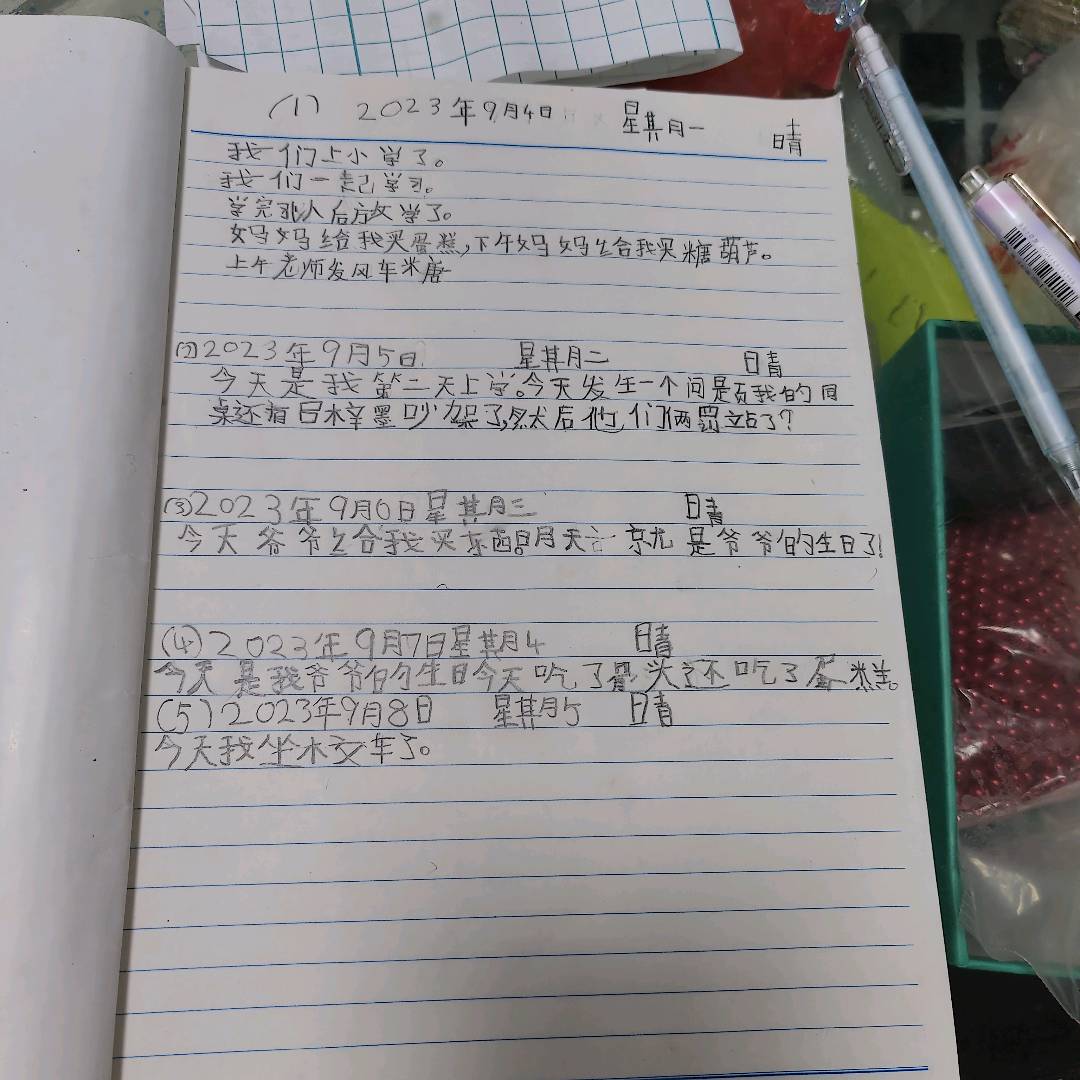 (1) 2023年9月4日 星期一 晴
我们上小学了。
我们一起学习。
学完以后放学了。
妈妈给我买蛋糕,下午妈妈给我买糖葫芦。
上午老师发风车米唐
(2)2023年9月5日 星期二 晴
今天是我第二天上学。今天发生一个问题我的同
桌还有 梓墨吵架了,然后他们俩罚站了?
(3)2023年9月6日 星期三 晴
今天爷爷给我买东西明天 就是爷爷的生日了!
(4)2023年9月7日星期4 晴
今天是我爷爷的生日今天吃了 头还吃了蛋糕。
(5)2023年9月8日 星期5 晴
今天我坐木交车了。